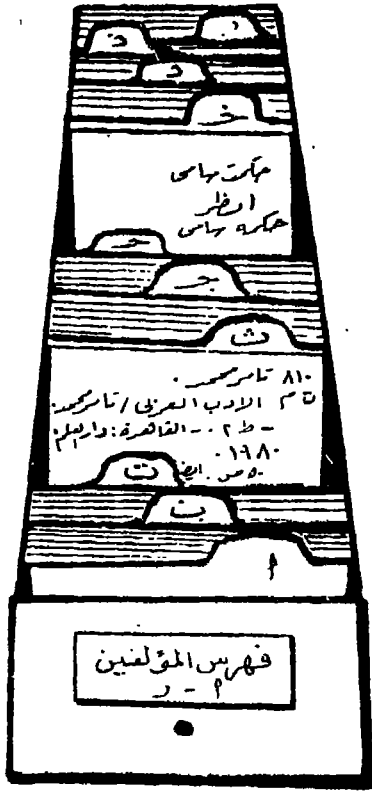 ذ
د
خ
حكمت سامى
انظر
حكمه سامى
ح
ج
ث
٨١٠ تامر محمد.
ت م الادب العربى / تامر محمد.
- ط ٢. - القاهرة: دار العلم
١٩٨٠.
ص. ايض
ت
ب
أ
فهرس المؤلفين
أ - ر